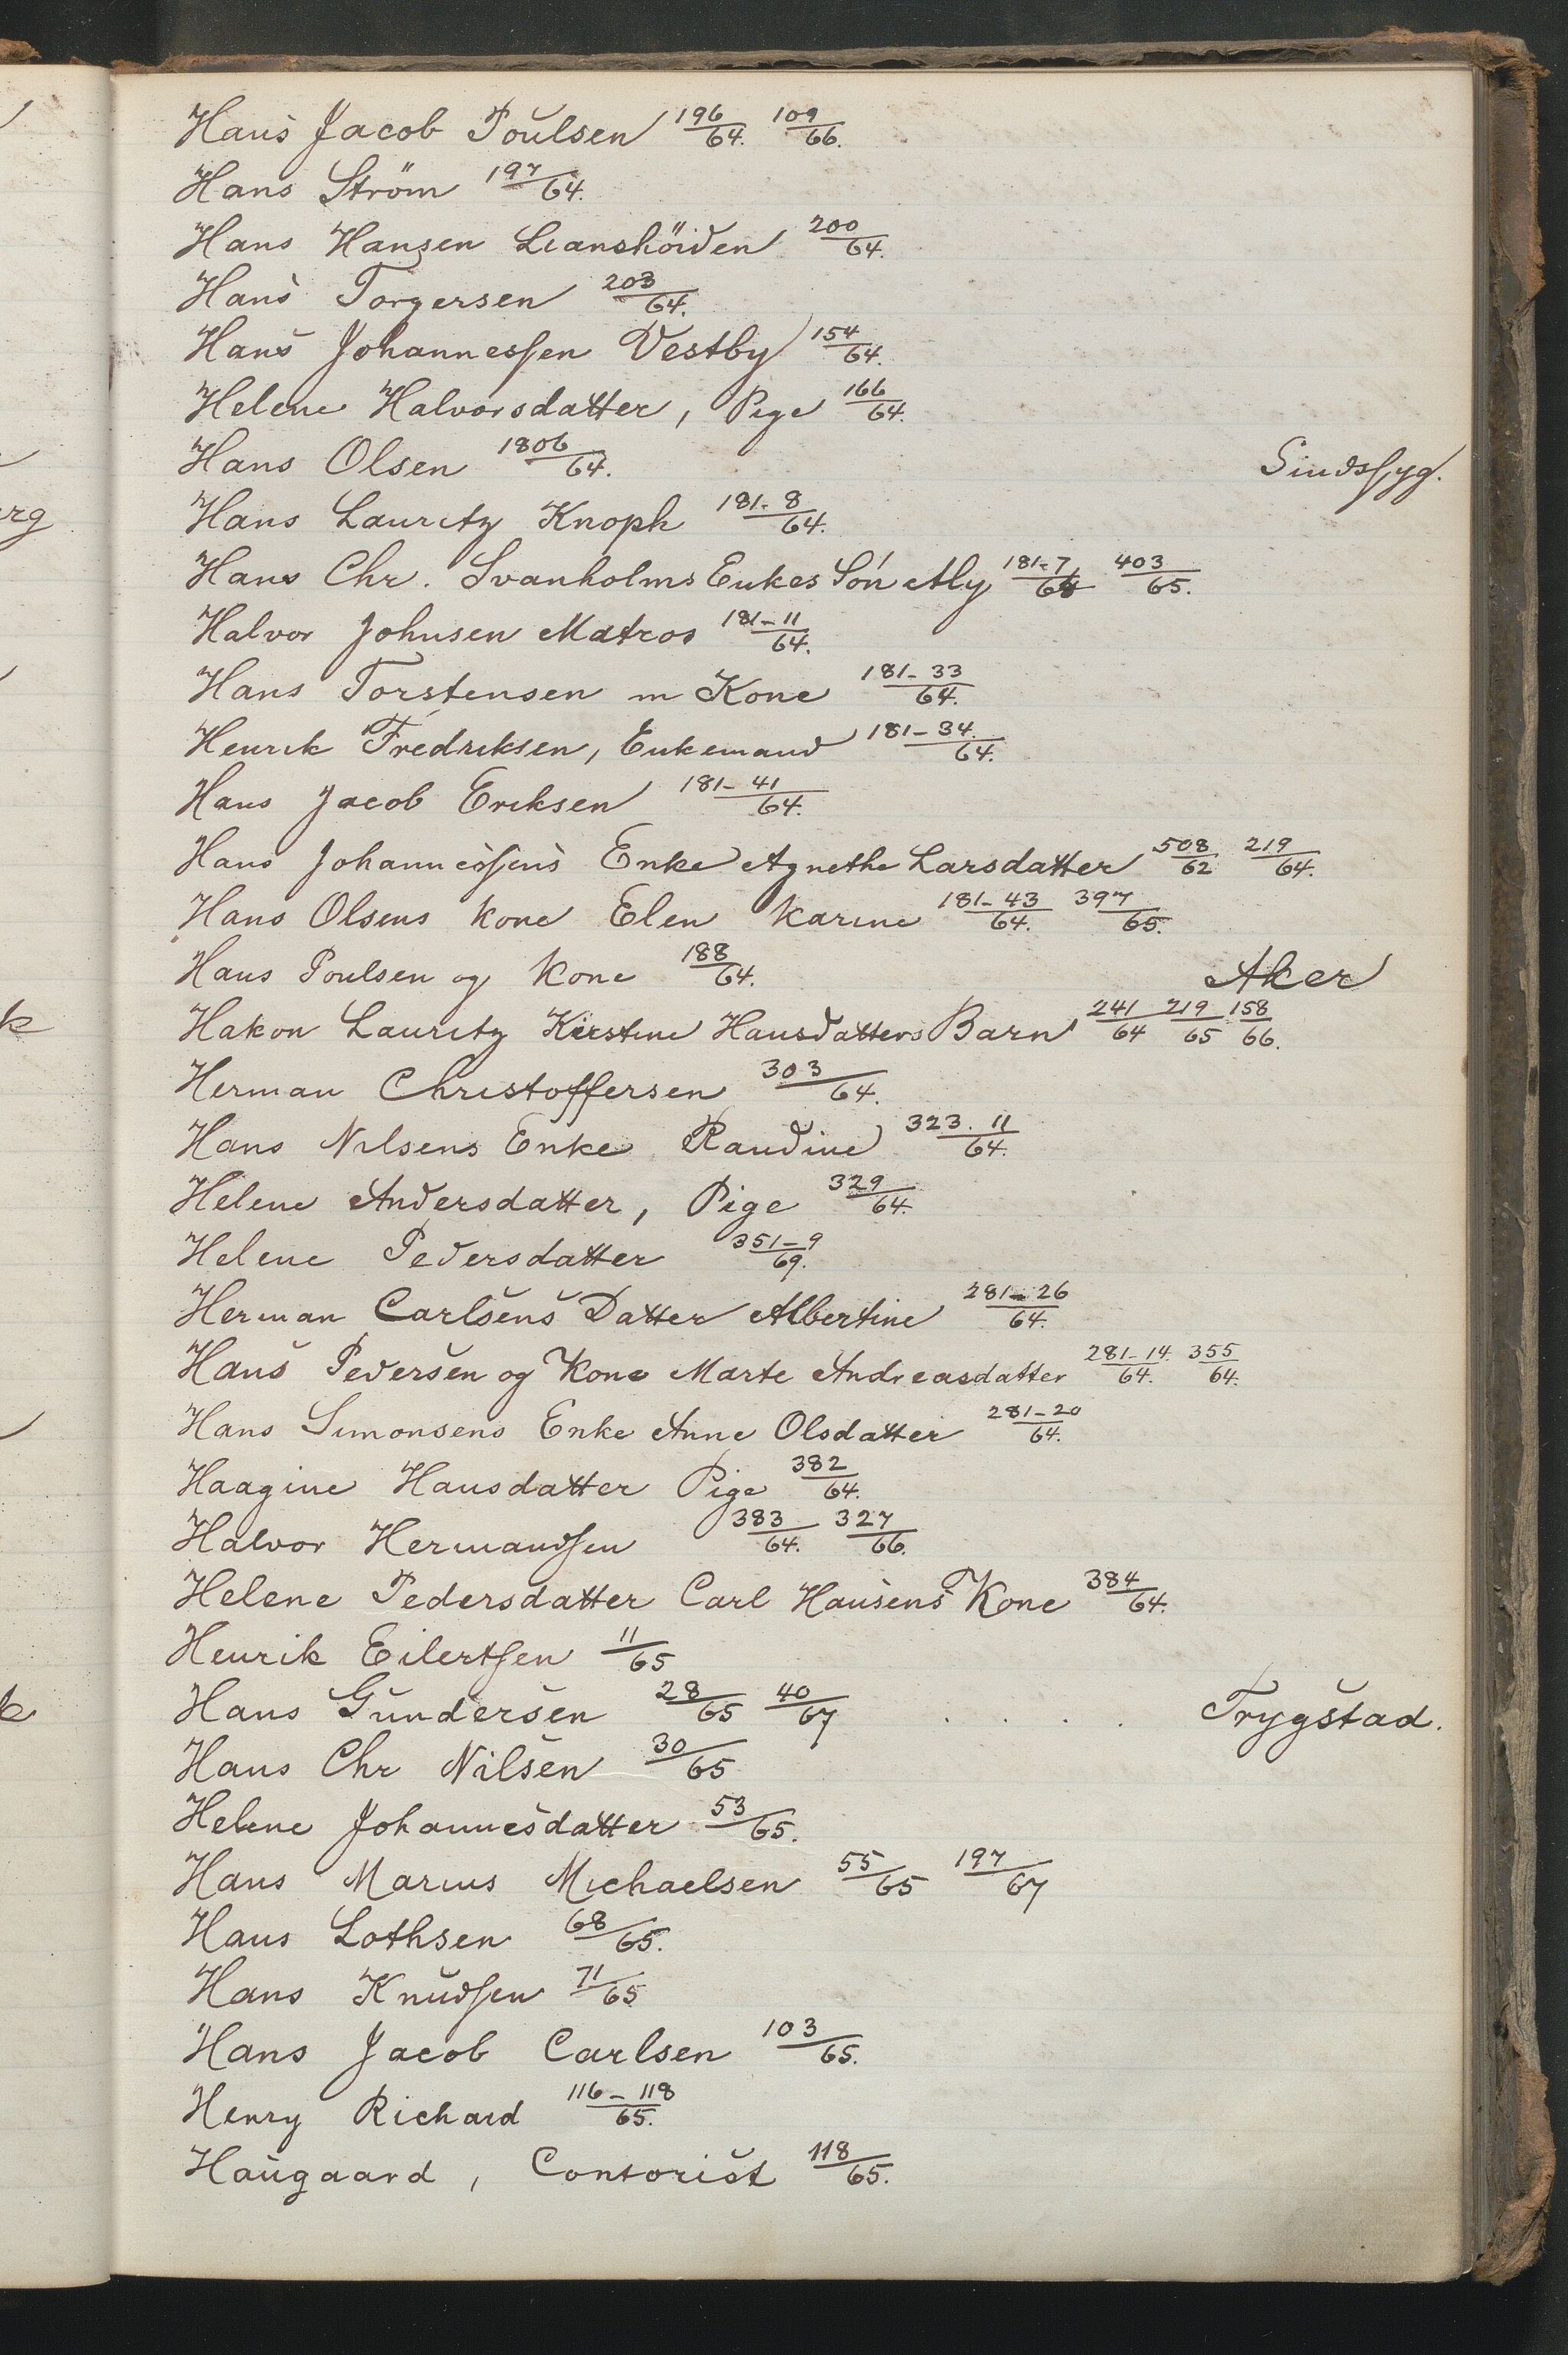 Hans Jacob Poulsen 196/64. 109/66.
Hans Ström 197/64.
Hans Hansen Lianshöiden 200/64.
Hans Torgersen 203/64.
Hans Johannessen Vestby 154/64.
Helene Halvorsdatter, Pige 166/64.
Hans Olsen 1806/64. Sindssyg.
Hans Lauritz Knoph 181-8/64.
Hans Chr. Svanholms Enkes Sön Aly 181-7/64 403/65.
Halvor Johnsen Matros 181-11/64.
Hans Torstensen m Kone 181-33/64.
Henrik Fredriksen, Enkemand 181-34./64.
Hans Jacob Eriksen 181-41/64.
Hans Johannessens Enke Agnethe Larsdatter 508/62 219/64.
Hans Olsens Kone Elen Karine 181-43/64. 397/65.
Hans Poulsen og Kone 188/64. Aker
Hakon Lauritz Kirstine Hansdatters Barn 241/64 219/65 158/66.
Herman Christoffersen 303/64.
Hans Nilsens Enke Randine 323.11/64.
Helene Andersdatter, Pige 329/64.
Helene Pedersdatter 351-9/69.
Herman Carlsens Datter Albertine 281-26/64.
Hans Pedersen og Kone Marte Andreasdatter 281-14./64. 355/64.
Hans Simonsens Enke Anne Olsdatter 281-20/64.
Haagine Hansdatter Pige 382/64.
Halvor Hermandsen 383/64. 327/66.
Helene Pedersdatter Carl Hansens Kone 384/64.
Henrik Eilertsen 11/65
Hans Gundersen 28/65 40/67 . . . . Trygstad.
Hans Chr Nilsen 30/65
Helene Johannesdatter 53/65.
Hans Marius Michaelsen 55/65 197/67
Hans Lothsen 68/65.
Hans Knudsen 71/65
Hans Jacob Carlsen 103/65.
Henry Richard 116-118/65.
Haugaard, Contorist 118/65.